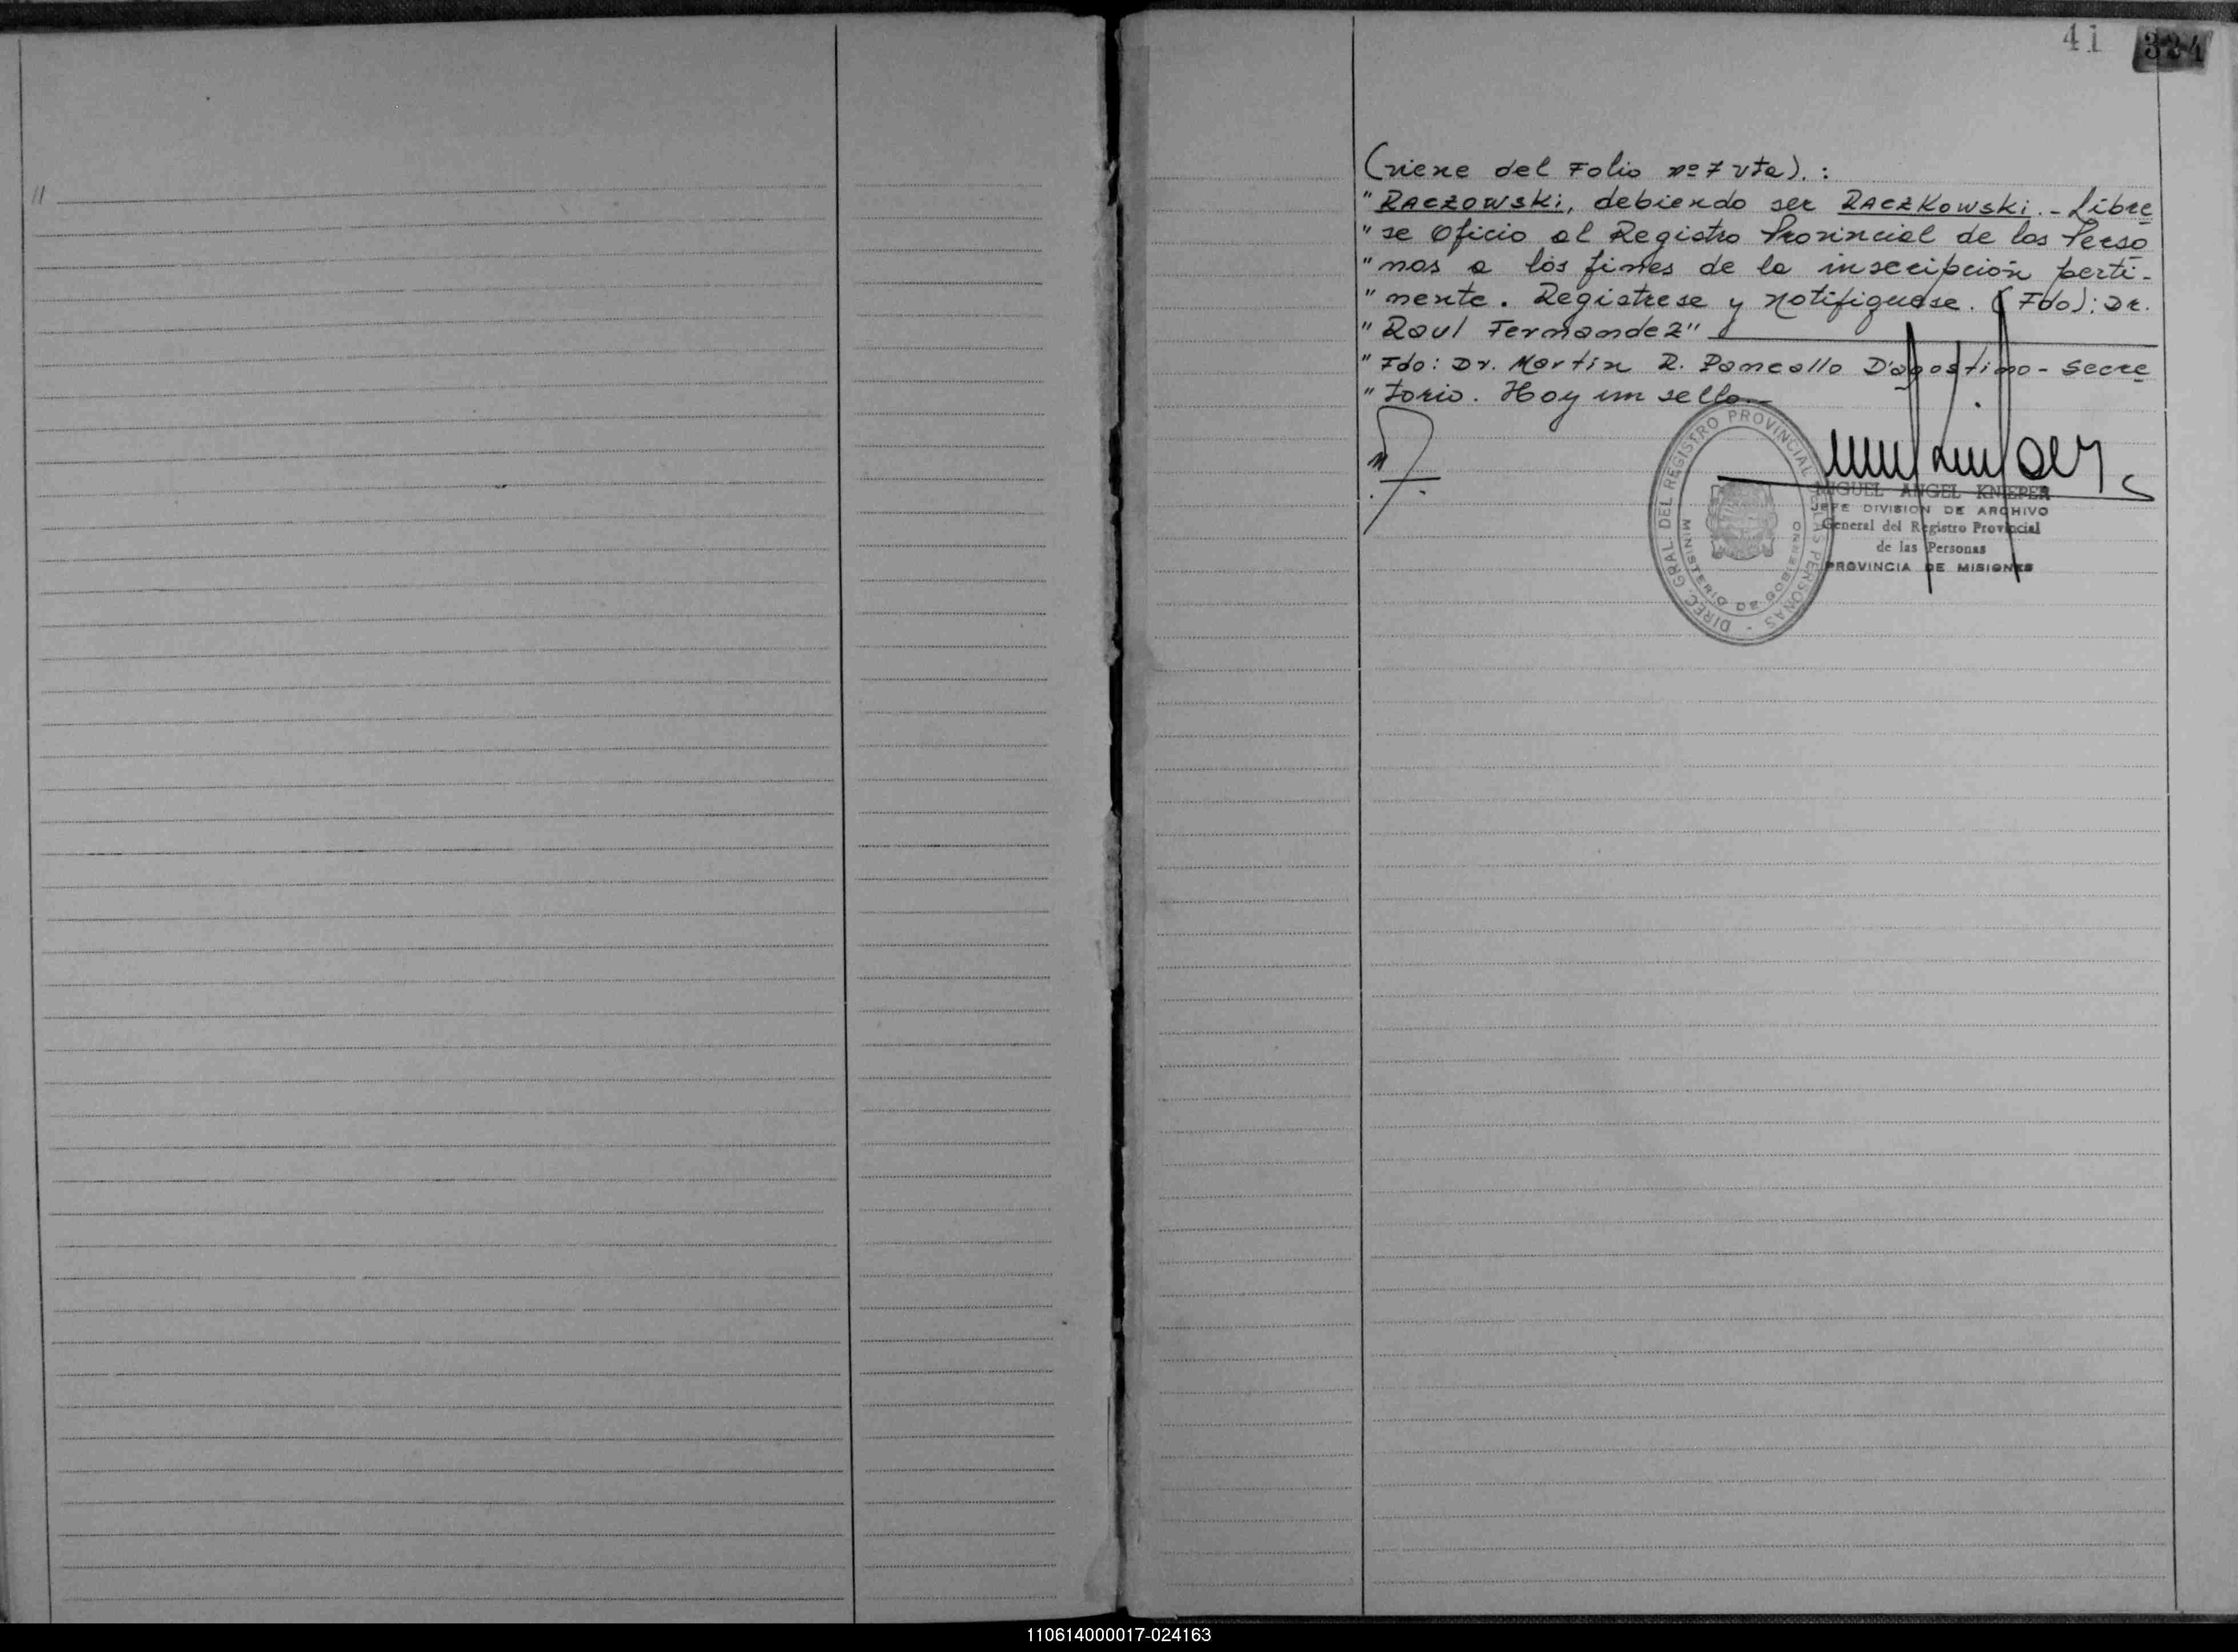 "
41 324
(viene del Folio nº 7 vta). :
" RACZOWSKI, debiendo ser RACZKOWSKI. - Libre
" se Oficio al Registro Provincial de las Perso
" nas a los fines de la inscripción perti-
" nente. Registrese y notifiquese. (Fdo): Dr.
" Raul Fernandez"
" Fdo: Dr. Martin R. Pancallo D'agostino - Secre
" tario. Hay un sello.-
DIREC. GRAL. DEL REGISTRO PROVINCIAL DE LAS PERSONAS -
MINISTERIO DE GOBIERNO
MIGUEL ANGEL KNIEPER
JEFE DIVISION DE ARCHIVO
General del Registro Provincial
de las Personas
PROVINCIA DE MISIONES
110614000017-024163